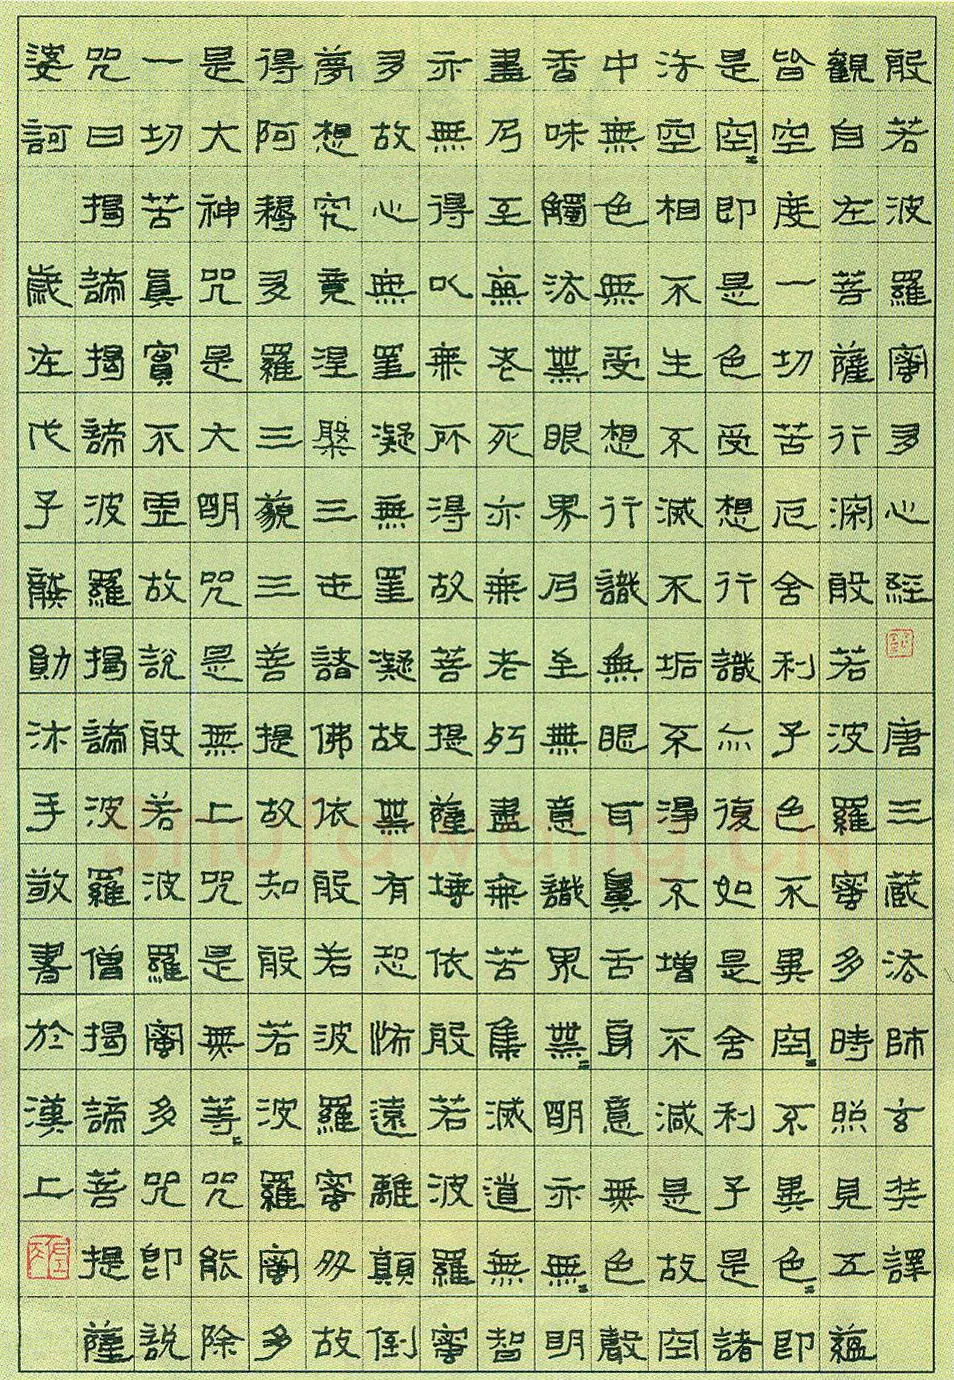 般若波羅蜜多心經 唐三藏法師玄奘譯
觀自在菩薩行深般若波羅蜜多時照見五蘊
皆空度一切苦厄舍利子色不異空〻不異色〻即
是空〻即是色受想行識亦復如是舍利子是諸
法空相不生不滅不垢不淨不增不減是故空
中無色無受想行識無眼耳鼻舌身意無色聲
香味觸法無眼界乃至無意識界無〻明亦無〻明
盡乃至無老死亦無老死盡無苦集滅道無智
亦無得以無所得故菩提薩埵依般若波羅蜜
多故心無罣凝無罣凝故無有恐怖遠離顛倒
夢想究竟涅槃三世諸佛依般若波羅蜜多故
得阿耨多羅三藐三菩提故知般若波羅蜜多
是大神咒是大明咒是無上咒是無等〻咒能除
一切苦真實不虛故說般若波羅蜜多咒即說
咒曰揭諦揭諦波羅揭諦波羅僧揭諦菩提薩
婆訶 歲在戊子龔勛沐手敬書於漢上
shufawang.CN